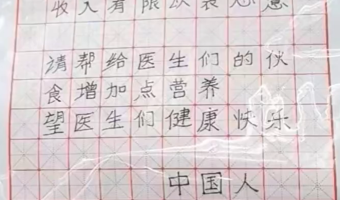 收入有限以表心意
請帮给医生们的伙
食增加点营养
望医生们健康快乐
中国人